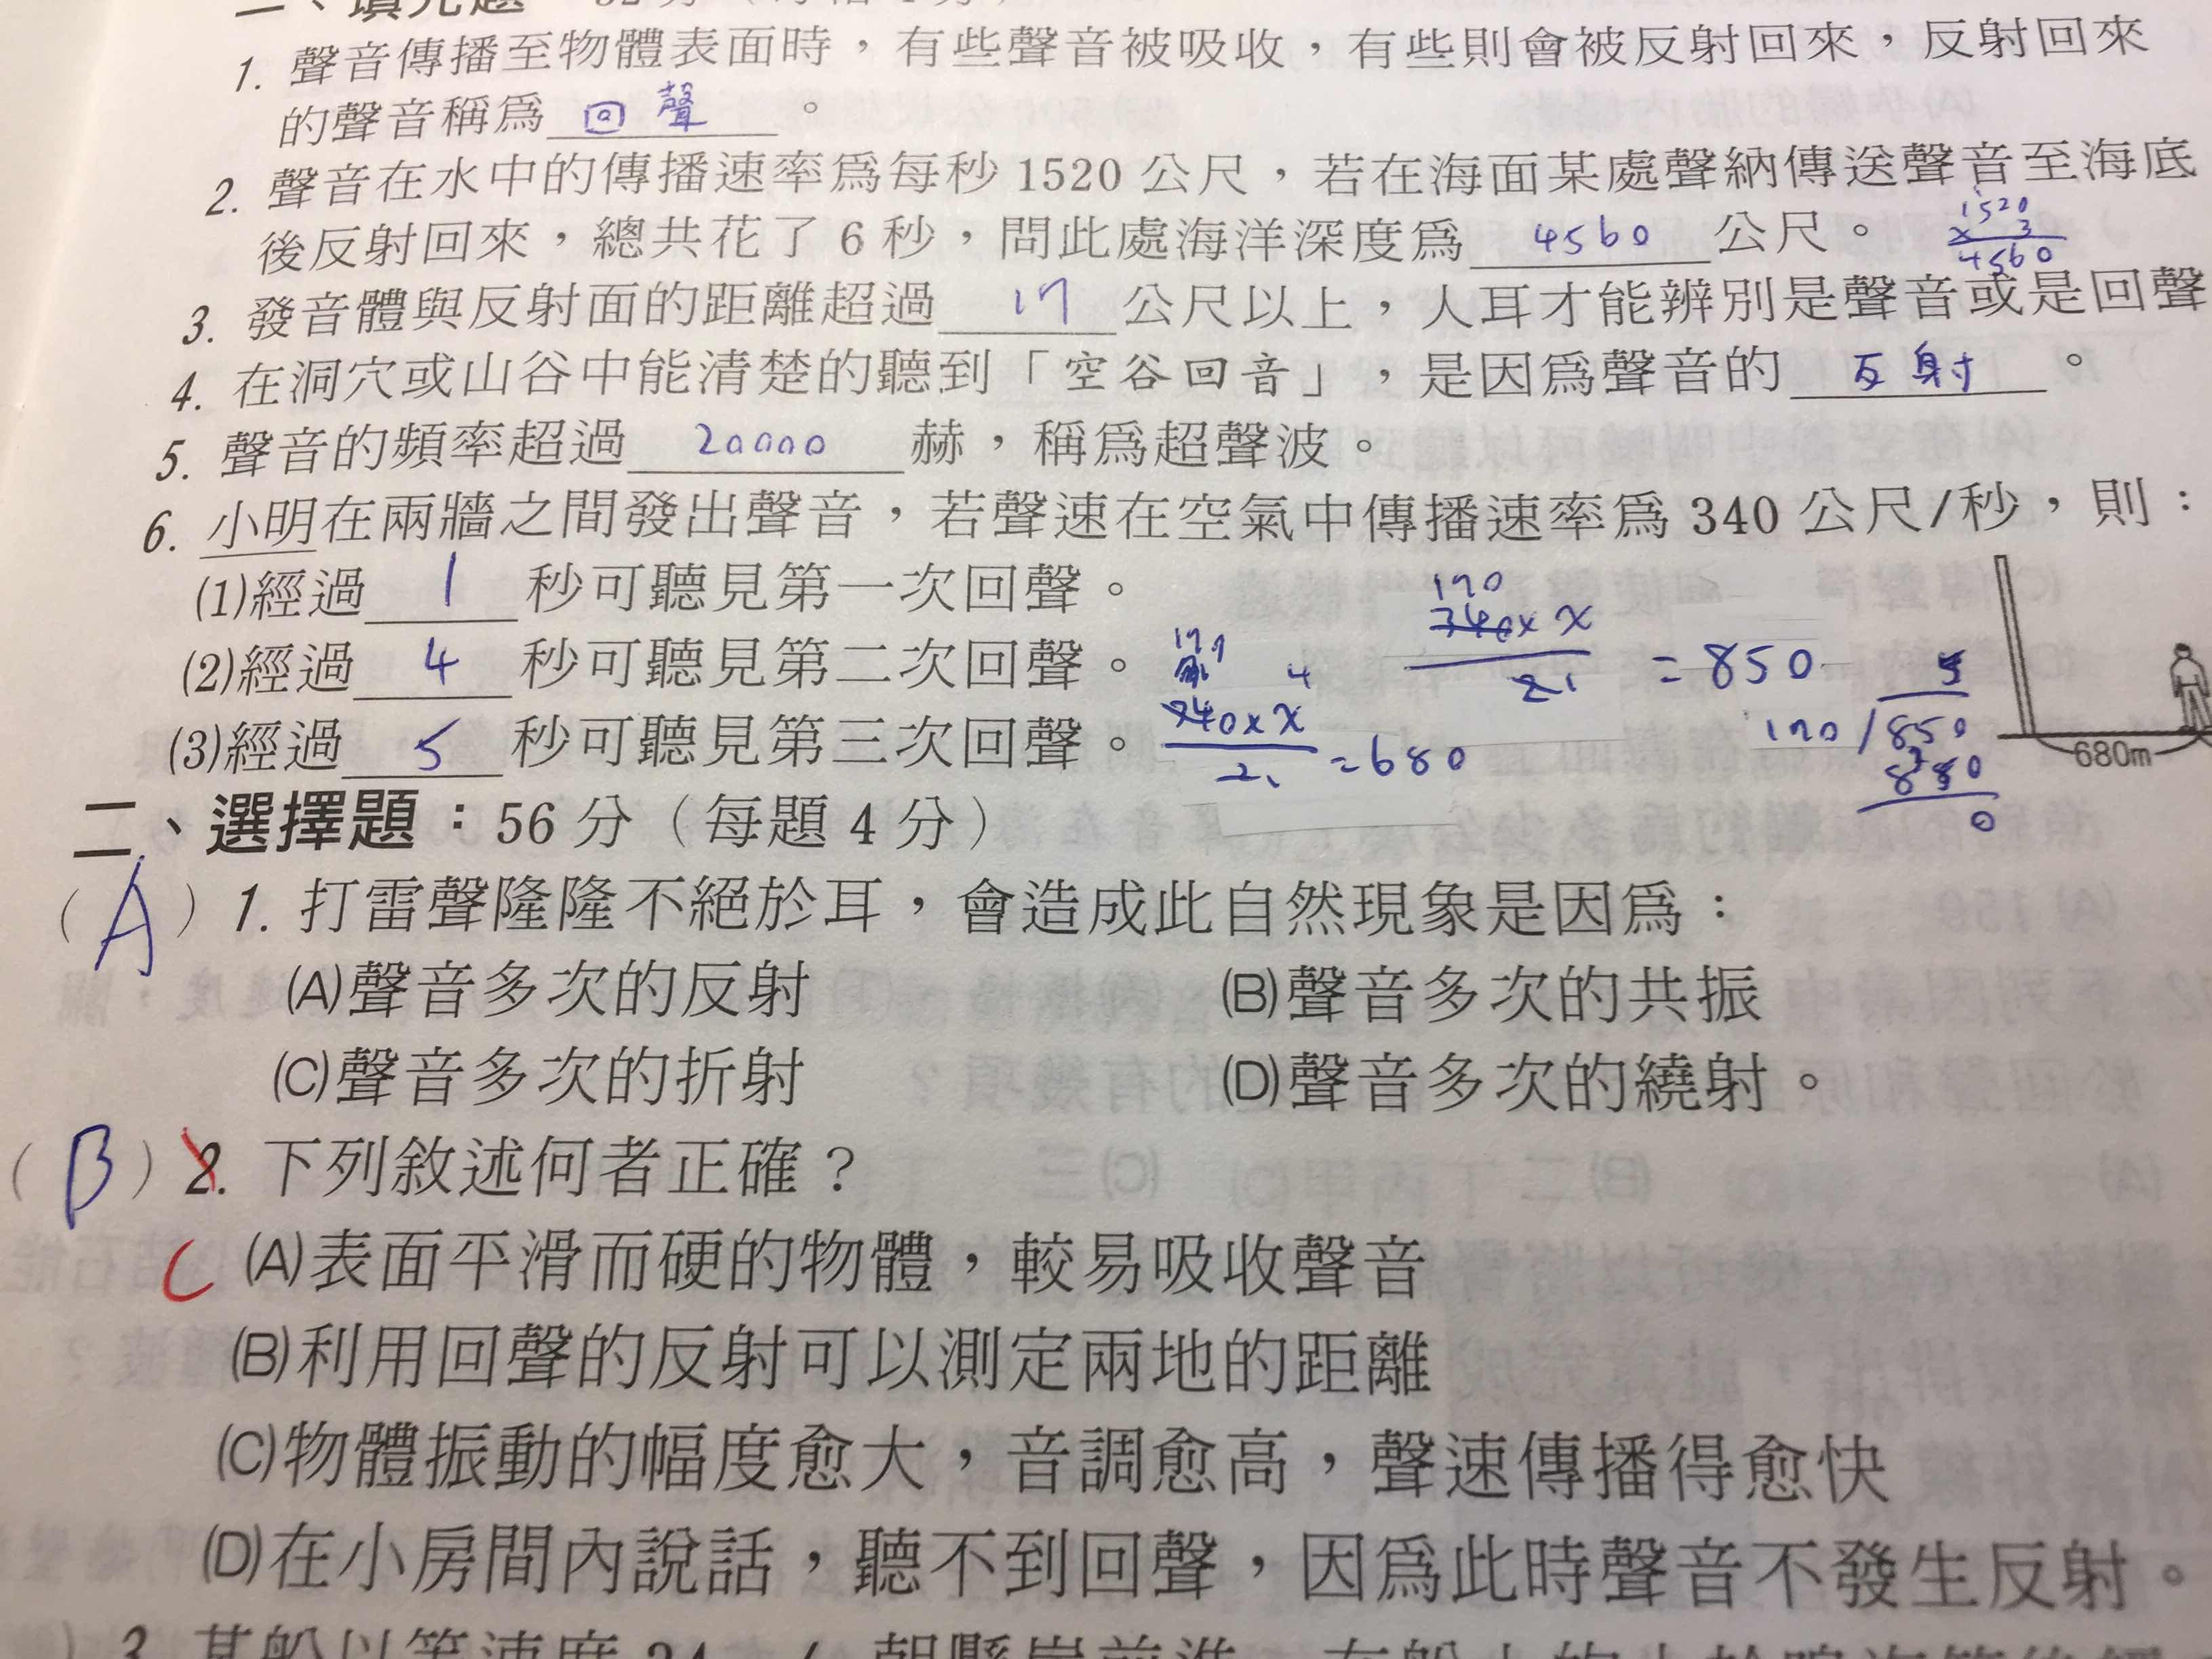 1. 聲音傳播至物體表面時，有些聲音被吸收，有些則會被反射回來，反射回來
的聲音稱爲 回聲 。
2. 聲音在水中的傳播速率爲每秒 1520 公尺，若在海面某處聲納傳送聲音至海底
後反射回來，總共花了 6 秒，問此處海洋深度爲 4560 公尺。
1520
× 3
4560
3. 發音體與反射面的距離超過 17 公尺以上，人耳才能辨別是聲音或是回聲
4. 在洞穴或山谷中能清楚的聽到「空谷回音」，是因爲聲音的 反射 。
5. 聲音的頻率超過 20000 赫，稱爲超聲波。
6. 小明在兩牆之間發出聲音，若聲速在空氣中傳播速率爲 340 公尺/秒，則：
(1)經過 1 秒可聽見第一次回聲。
(2)經過 4 秒可聽見第二次回聲。
(3)經過 5 秒可聽見第三次回聲。
170
340× x
2 1 = 850
4
340× x
2 1 = 680
5
170 / 850
850
0
680m
二、選擇題：56 分（每題 4 分）
（A）1. 打雷聲隆隆不絕於耳，會造成此自然現象是因爲：
(A)聲音多次的反射 (B)聲音多次的共振
(C)聲音多次的折射 (D)聲音多次的繞射。
（B）2. 下列敘述何者正確？
C (A)表面平滑而硬的物體，較易吸收聲音
(B)利用回聲的反射可以測定兩地的距離
(C)物體振動的幅度愈大，音調愈高，聲速傳播得愈快
(D)在小房間內說話，聽不到回聲，因爲此時聲音不發生反射。